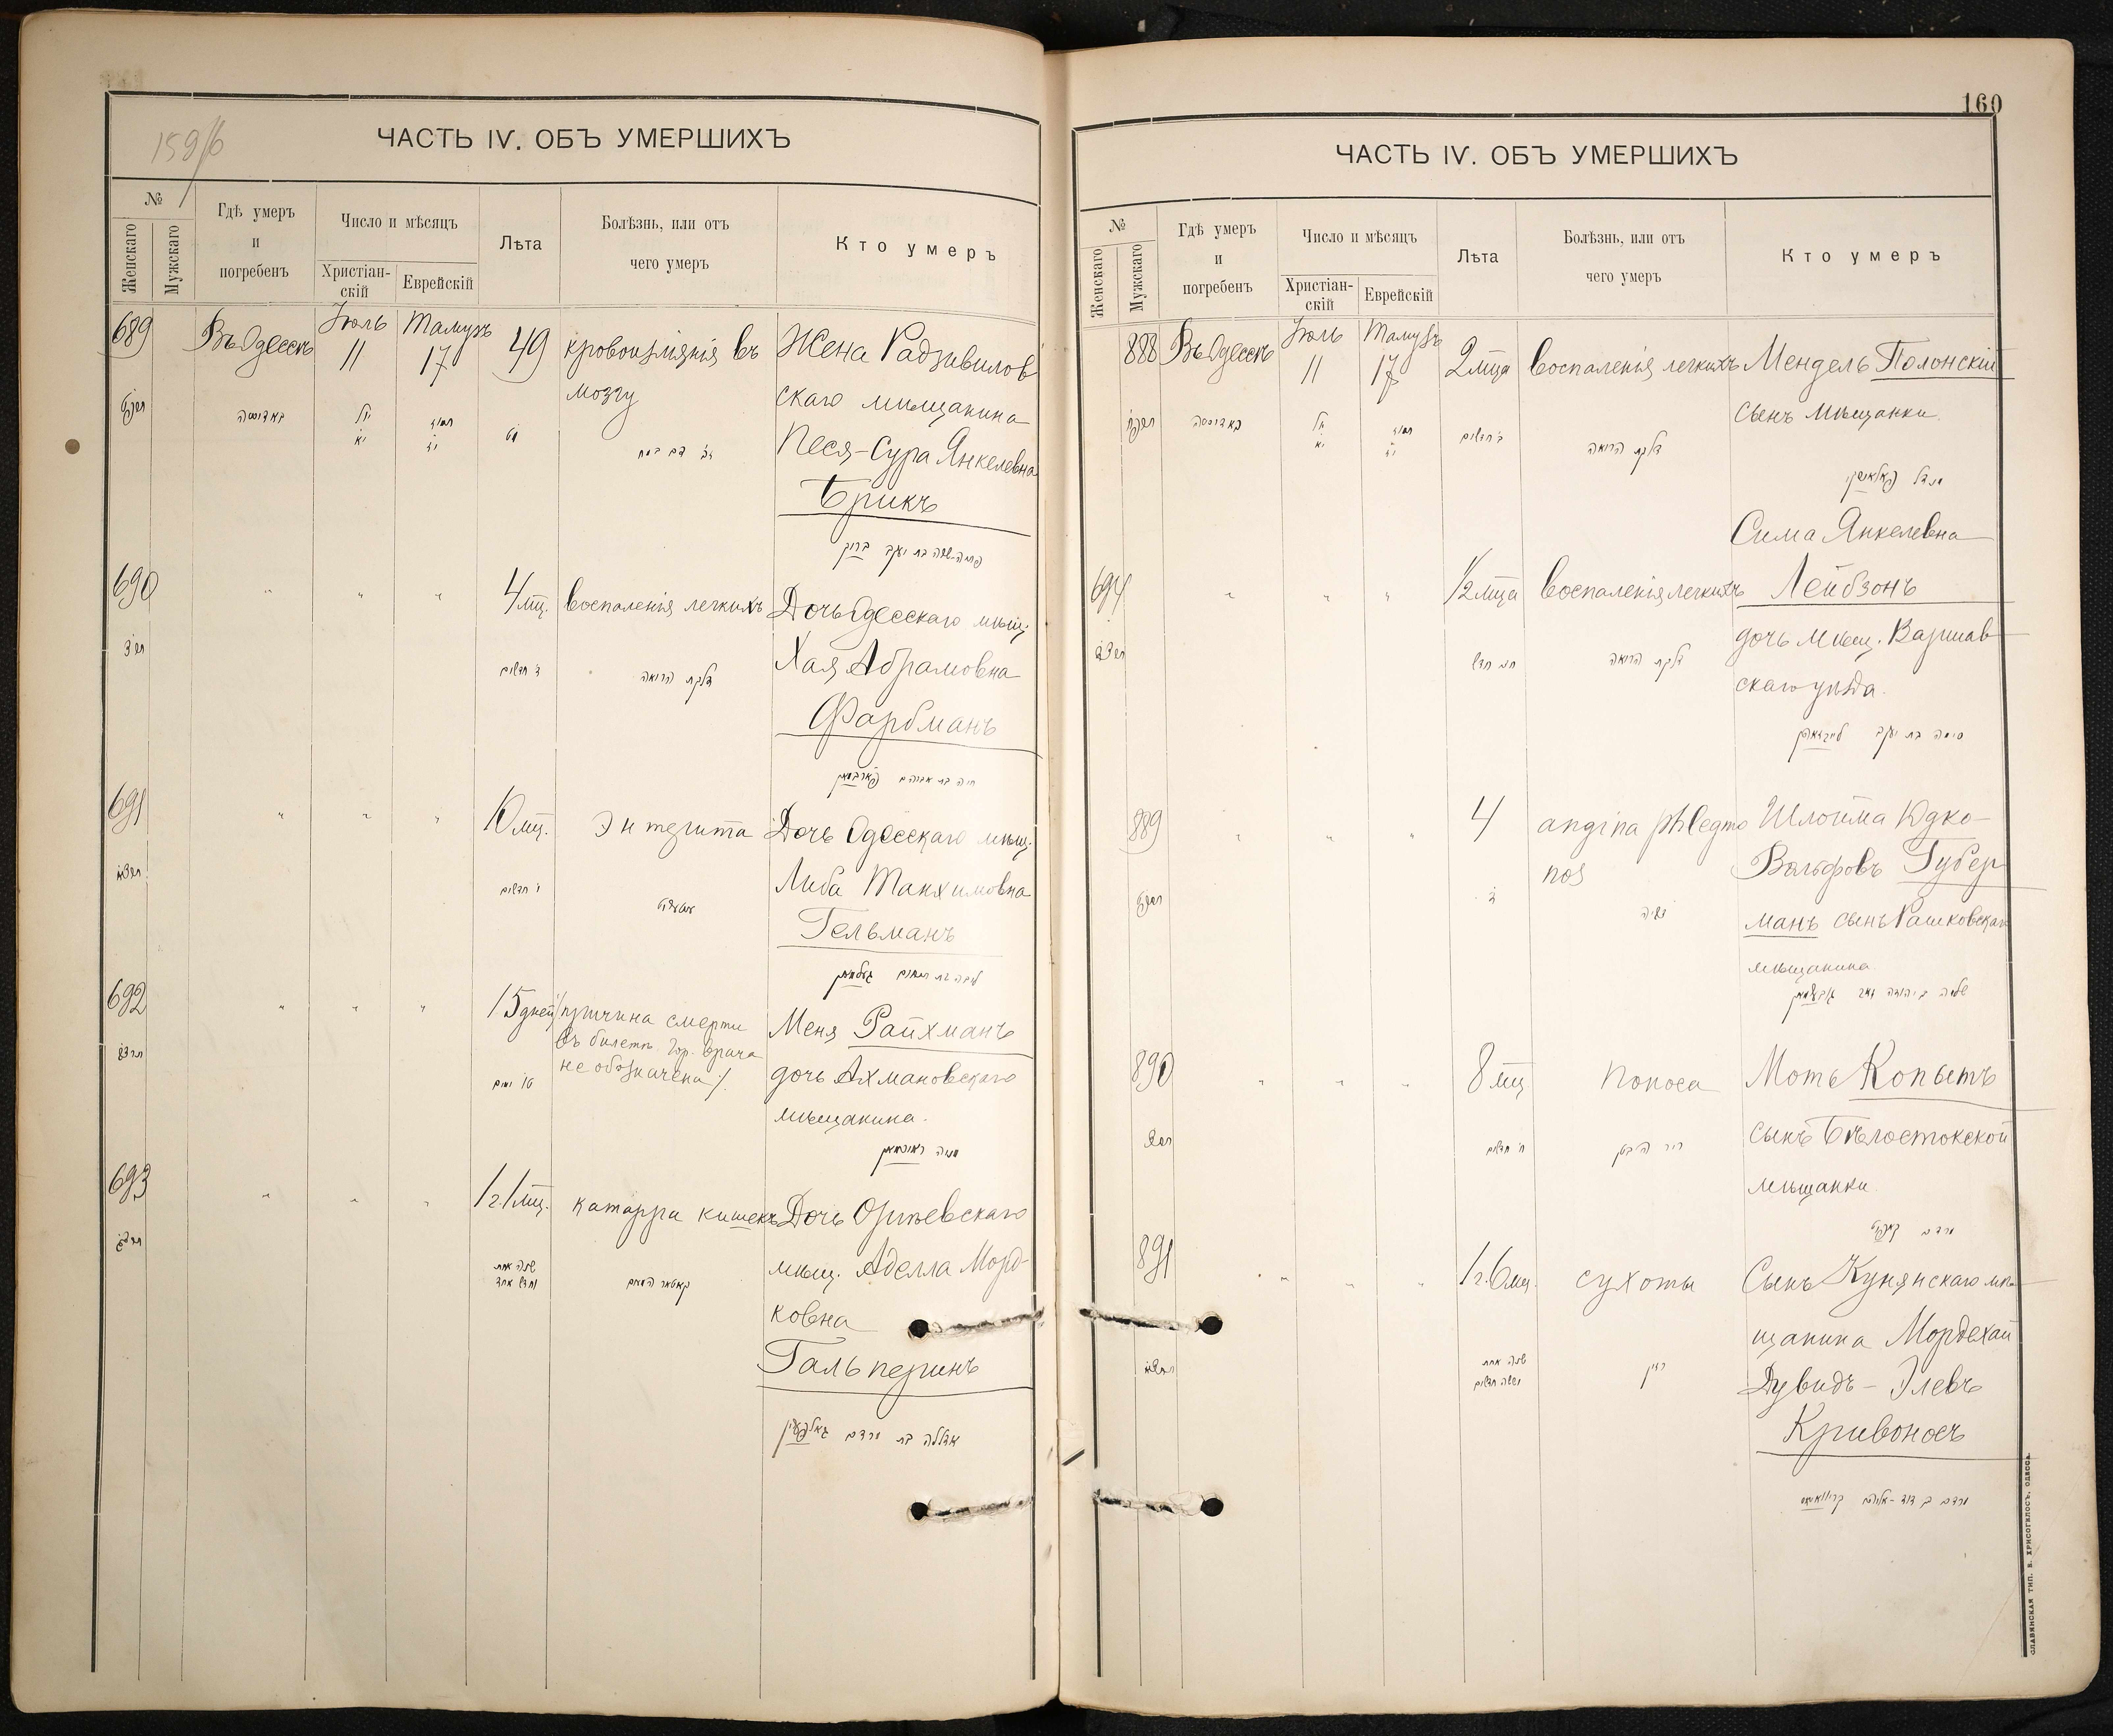 159/б
ЧАСТЬ IV. ОБЪ УМЕРШИХЪ
№
Женскаго
Мужскаго
Гдѣ умеръ
и
погребенъ
Число и мѣсяцъ
Христіан-
скій
Еврейскій
Лѣта
Болѣзнь, или отъ
чего умеръ
Кто умеръ
689
Въ Одессѣ
Іюль
11
Тамузъ
17
49
кровоизліянія въ
мозгу
Жена Радзивилов
скаго мѣщанина
Песя-Сура Янкелевна
Брикъ
באדיססה
יא
690
" " "
4 мц.
воспаленія легкихъ
Дочь Одесскаго мѣщ.
Хая Абрамовна
Фарбманъ
ד חדשים
דלקת הריאה
חיה בת אברהם פארבמאן
691
" " "
10 мц.
Энтерита
Дочь Одесскаго мѣщ.
Либа Танхимовна
Гельманъ
י חדשים
692
" " "
15 дней
/причина смерти
въ билетѣ гор. врача
не обозначена/.
Меня Райхманъ
дочь Ахмановскаго
мѣщанина.
693
" " "
1 г. 1 мц.
катарра кишекъ
Дочь Оргѣевскаго
мѣщ. Аделла Морд-
ковна
Гальперинъ
שנה אחת
וחדש אחד
160
ЧАСТЬ IV. ОБЪ УМЕРШИХЪ
№
Женскаго
Мужскаго
Гдѣ умеръ
и
погребенъ
Число и мѣсяцъ
Христіан-
скій
Еврейскій
Лѣта
Болѣзнь, или отъ
чего умеръ
Кто умеръ
888
Въ Одессѣ
Іюль
11
Тамузъ
17
2 мца
воспаленія легкихъ
Мендель Полонскій
сынъ мѣщанки
באדיססה
יא
ב חדשים
דלקת הריאה
694
" " "
1/2 мца
воспаленія легкихъ
Сима Янкелевна
Лейбзонъ
дочь мѣщ. Варшав
скаго уѣзда.
חצי חדש
דלקת הריאה
סימה בת יעקב לייבזאהן
889
" " "
4
angina phlegmo
nos
Шлойма Юдко-
Вольфовъ Губер
манъ сынъ Рашковскаго
мѣщанина
890
" " "
8 мц
поноса
Моть Копытъ
сынъ Бѣлостокской
мѣщанки
ח חדשים
891
" " "
1 г. 6 мц.
сухоты
Сынъ Кунянскаго мѣ-
щанина Мордехай
Дувидъ-Элевъ
Кривоносъ
שנה אחת
וששה חדשים
רזון
СЛАВЯНСКАЯ ТИП. Б. ХРИСОГЕЛОСЪ, ОДЕССА.